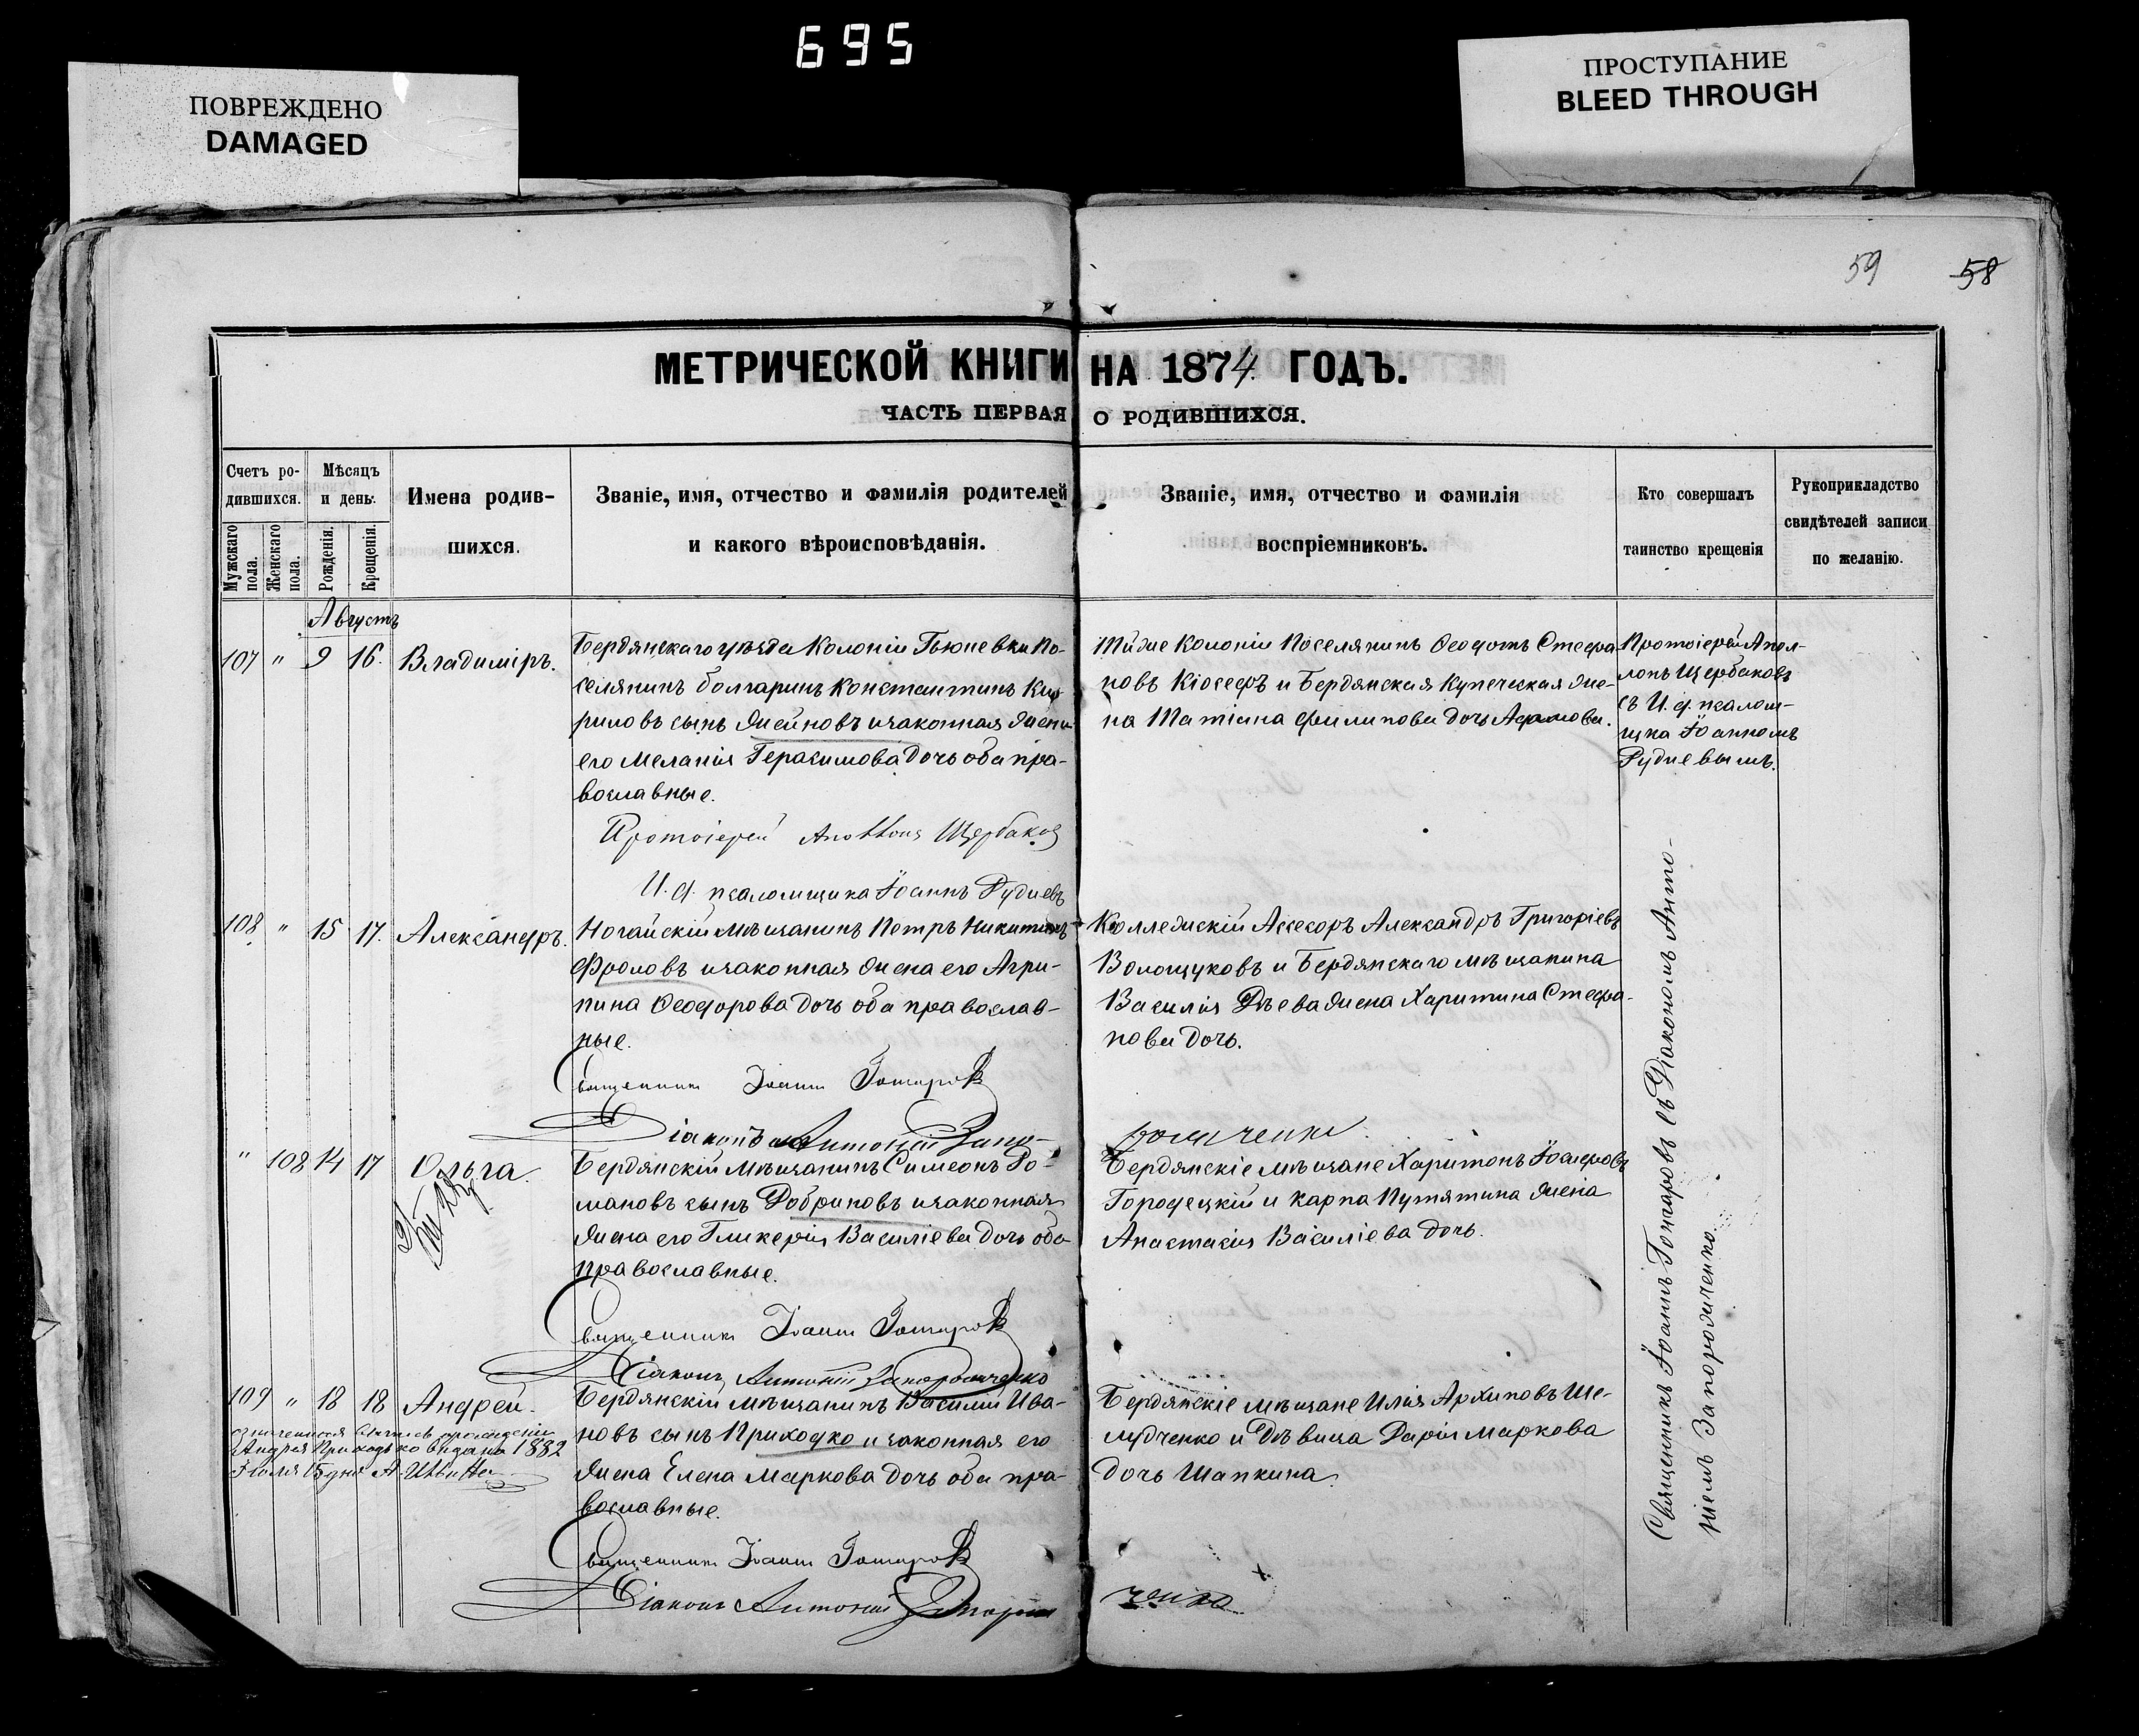 695
ПОВРЕЖДЕНО
DAMAGED
ПРОСТУПАНИЕ
BLEED THROUGH
59
58
МЕТРИЧЕСКОЙ КНИГИ НА 1874 ГОДЪ.
ЧАСТЬ ПЕРВАЯ О РОДИВШИХСЯ.
Счетъ ро-
дившихся.
Мужскаго
пола.
Женскаго
пола.
Мѣсяцъ
и день.
Рожденія.
Крещенія.
Имена родив-
шихся.
Званіе, имя, отчество и фамилія родителей
и какого вѣроисповѣданія.
Званіе, имя, отчество и фамилія
воспріемниковъ.
Кто совершалъ
таинство крещенія
Рукоприкладство
свидѣтелей записи
по желанію.
Августъ
107 " 9 16. Владиміръ.
Бердянскаго уѣзда Колоніи Гюневки По-
селянинъ болгаринъ Константинъ Ки-
риловъ сынъ Жейновъ и законная жена
его Меланія Герасимова дочь оба пра-
вославные.
Протоіерей Аполлонъ Щербаковъ
И. д. псаломщика Іоаннъ Рудневъ
Тойже Колоніи Поселянинъ Феодотъ Стефа
новъ Кіосефъ и Бердянская Купеческая же-
на Татіана Филипова дочь
Протоіерей Апол-
лонъ Щербаковъ
съ И. д. псалом-
щика Іоанномъ
Рудневымъ.
108 " 15 17. Александръ.
Ногайскій мѣщанинъ Петръ Никитинъ
Фроловъ и законная жена его Агри-
пина Феодорова дочь оба православ-
ные.
Священникъ Іоаннъ Гончаровъ
Діаконъ Антоній Запо-
рожченко
Коллежскій Ассесоръ Александръ Григоріевъ
Волощуковъ и Бердянскаго мѣщанина
Василія жена Харитина Стефа-
нова дочь.
" 108 14 17 Ольга.
Бердянскій мѣщанинъ Симеонъ Ро-
мановъ сынъ Добриновъ и законная
жена его Гликерія Василіева дочь оба
православные.
Священникъ Іоаннъ Гончаровъ
Діаконъ Антоній Запорожченко
Бердянскіе мѣщане Харитонъ Іосифовъ
Городецкій и Карпа Путятина жена
Анастасія Василіева дочь.
109 " 18 18 Андрей.
означенная запись о рожденіи
Андрея Приходько видана 1882
Іюля 15 дня
Бердянскій мѣщанинъ Василій Ива-
новъ сынъ Приходко и законная его
жена Елена Маркова дочь оба пра-
вославные.
Священникъ Іоаннъ Гончаровъ
Діаконъ Антоній Запорож
ченко
Бердянскіе мѣщане Илія Архиповъ Ше-
лудченко и Дѣвица Дарія Маркова
дочь Шапкина.
Священникъ Іоаннъ Гончаровъ съ Діакономъ Анто-
ніемъ Запорожченко.